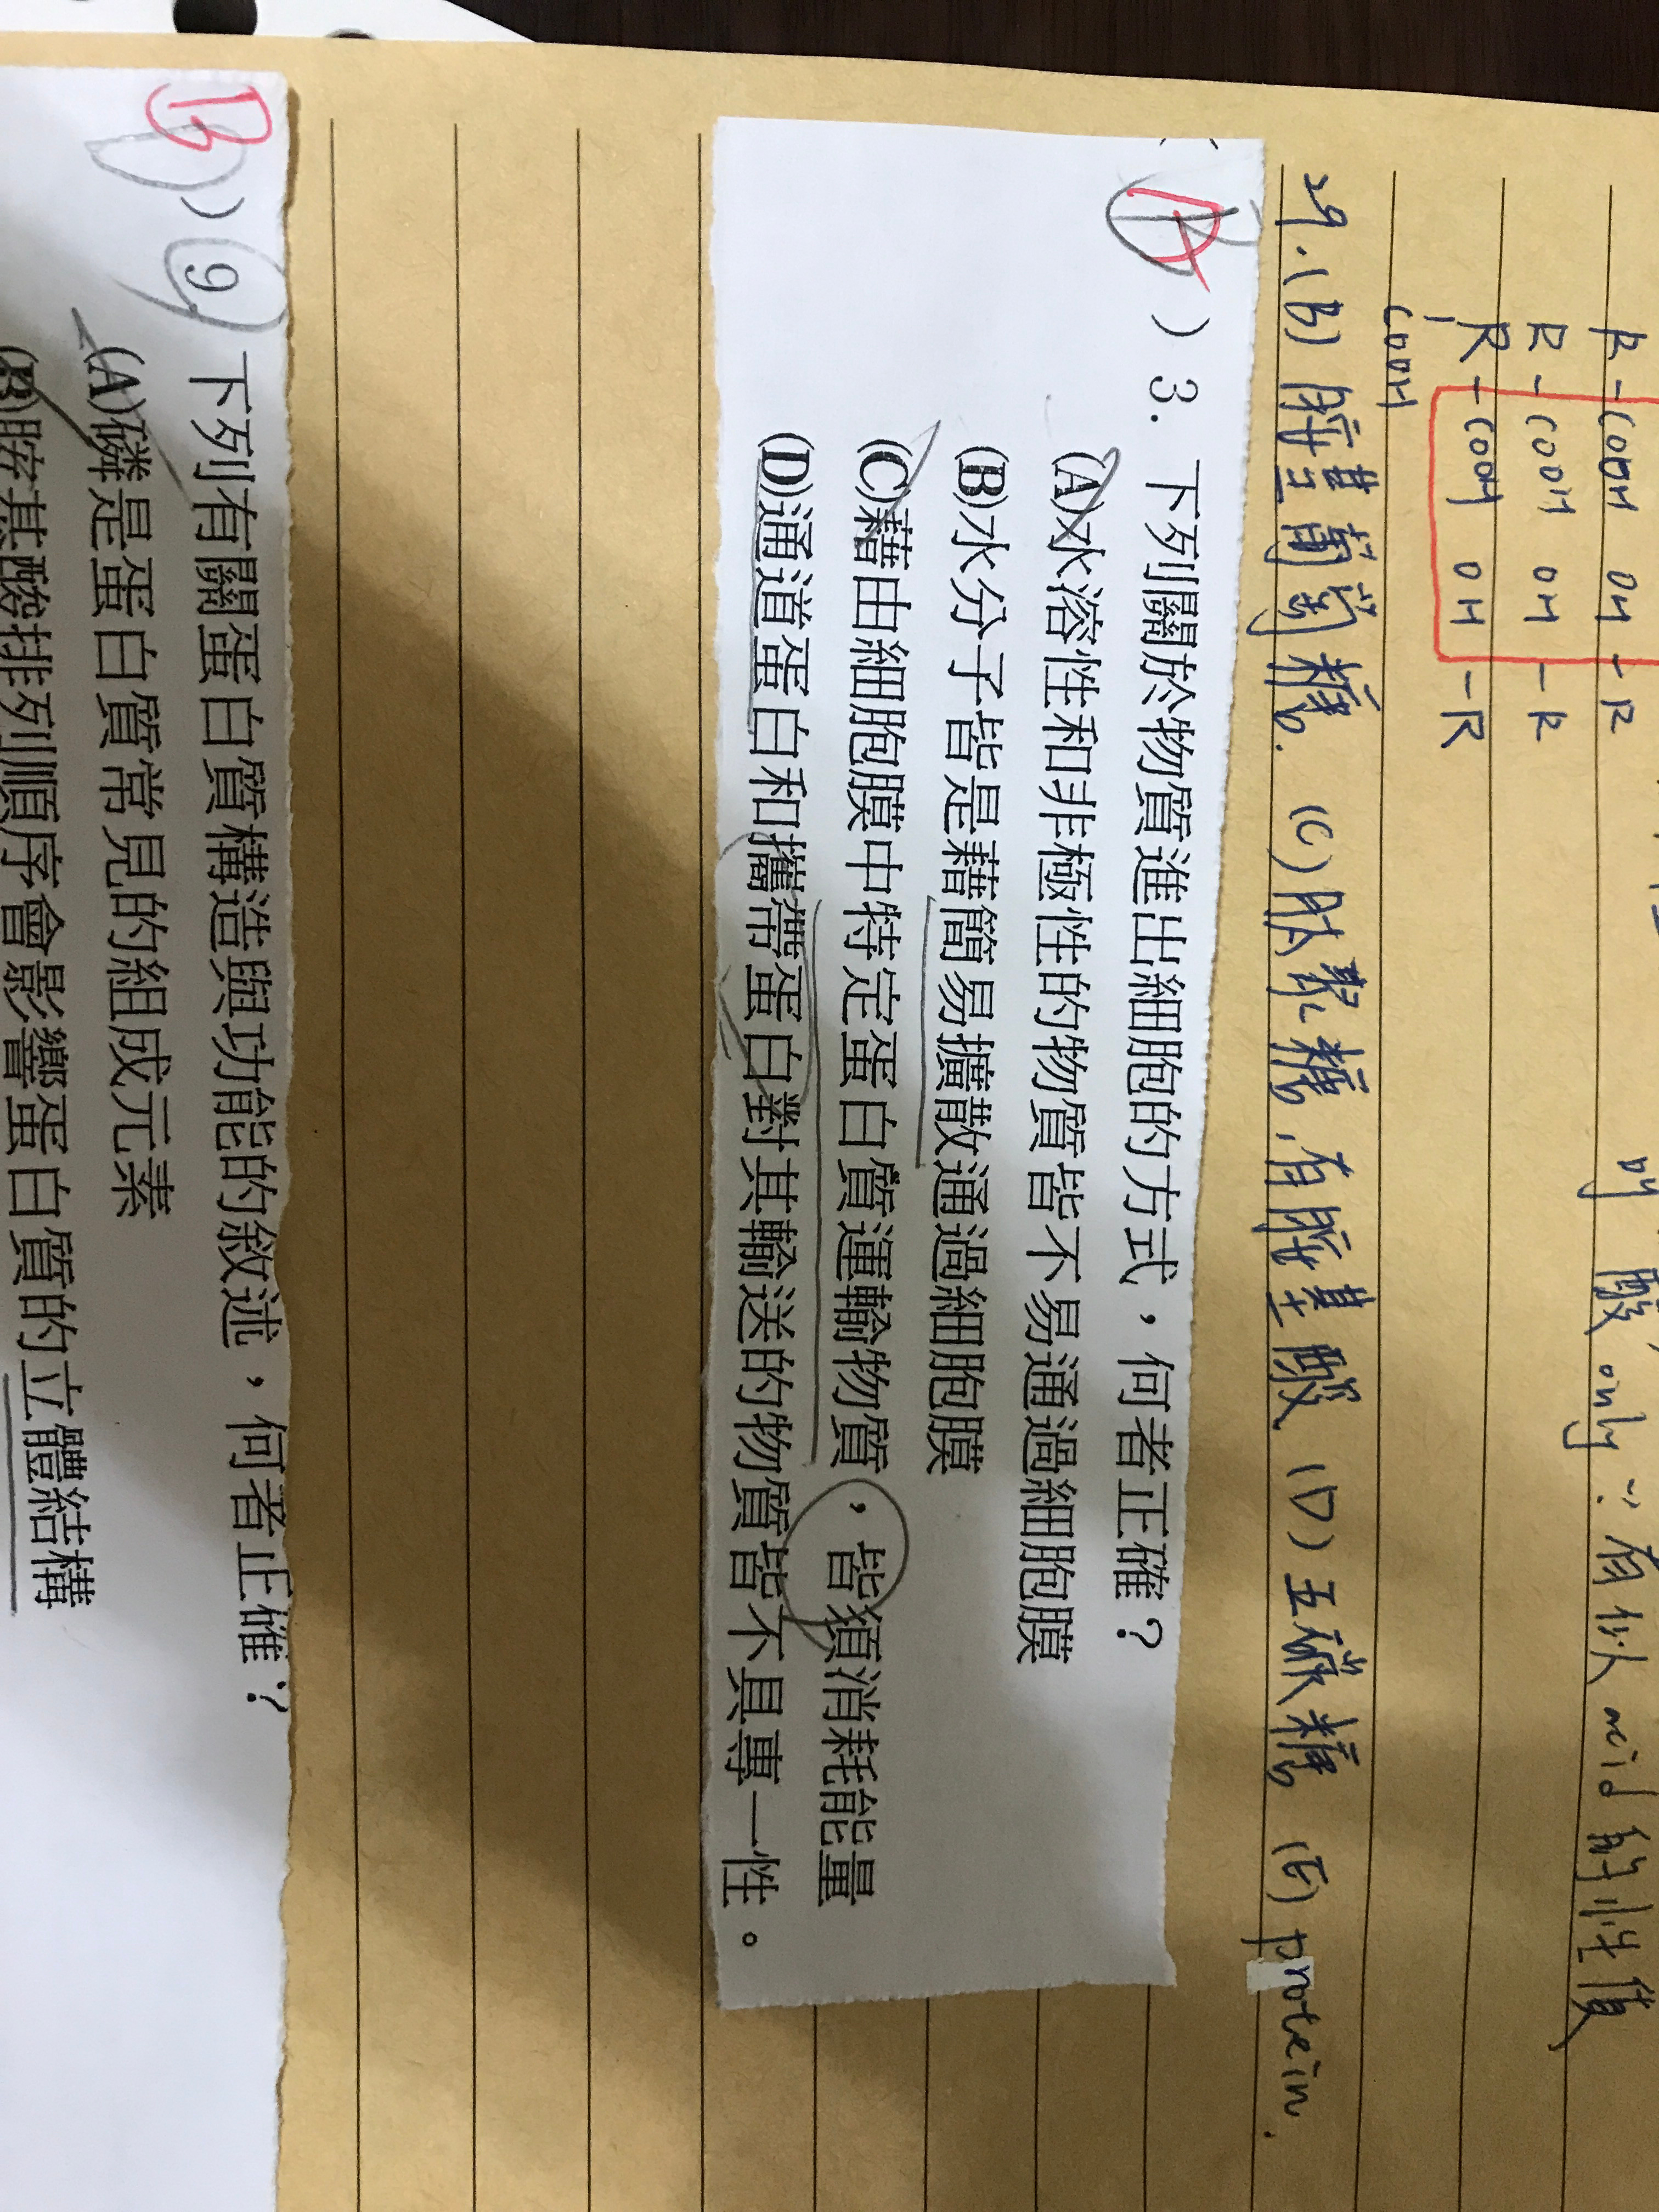 R-COOH OH-R
R-COOH OH-R
R-COOH OH-R
COOH
酸, only ∵有似acid的性質
29. (B) 胺基葡萄糖. (C) 肽聚糖, 有胺基酸 (D) 五碳糖 (E) protein.
A ) 3. 下列關於物質進出細胞的方式，何者正確？
(A)水溶性和非極性的物質皆不易通過細胞膜
(B)水分子皆是藉簡易擴散通過細胞膜
(C)藉由細胞膜中特定蛋白質運輸物質，皆須消耗能量
(D)通道蛋白和攜帶蛋白對其輸送的物質皆不具專一性。
B ) 9. 下列有關蛋白質構造與功能的敘述，何者正確？
(A)磷是蛋白質常見的組成元素
(B)胺基酸排列順序會影響蛋白質的立體結構